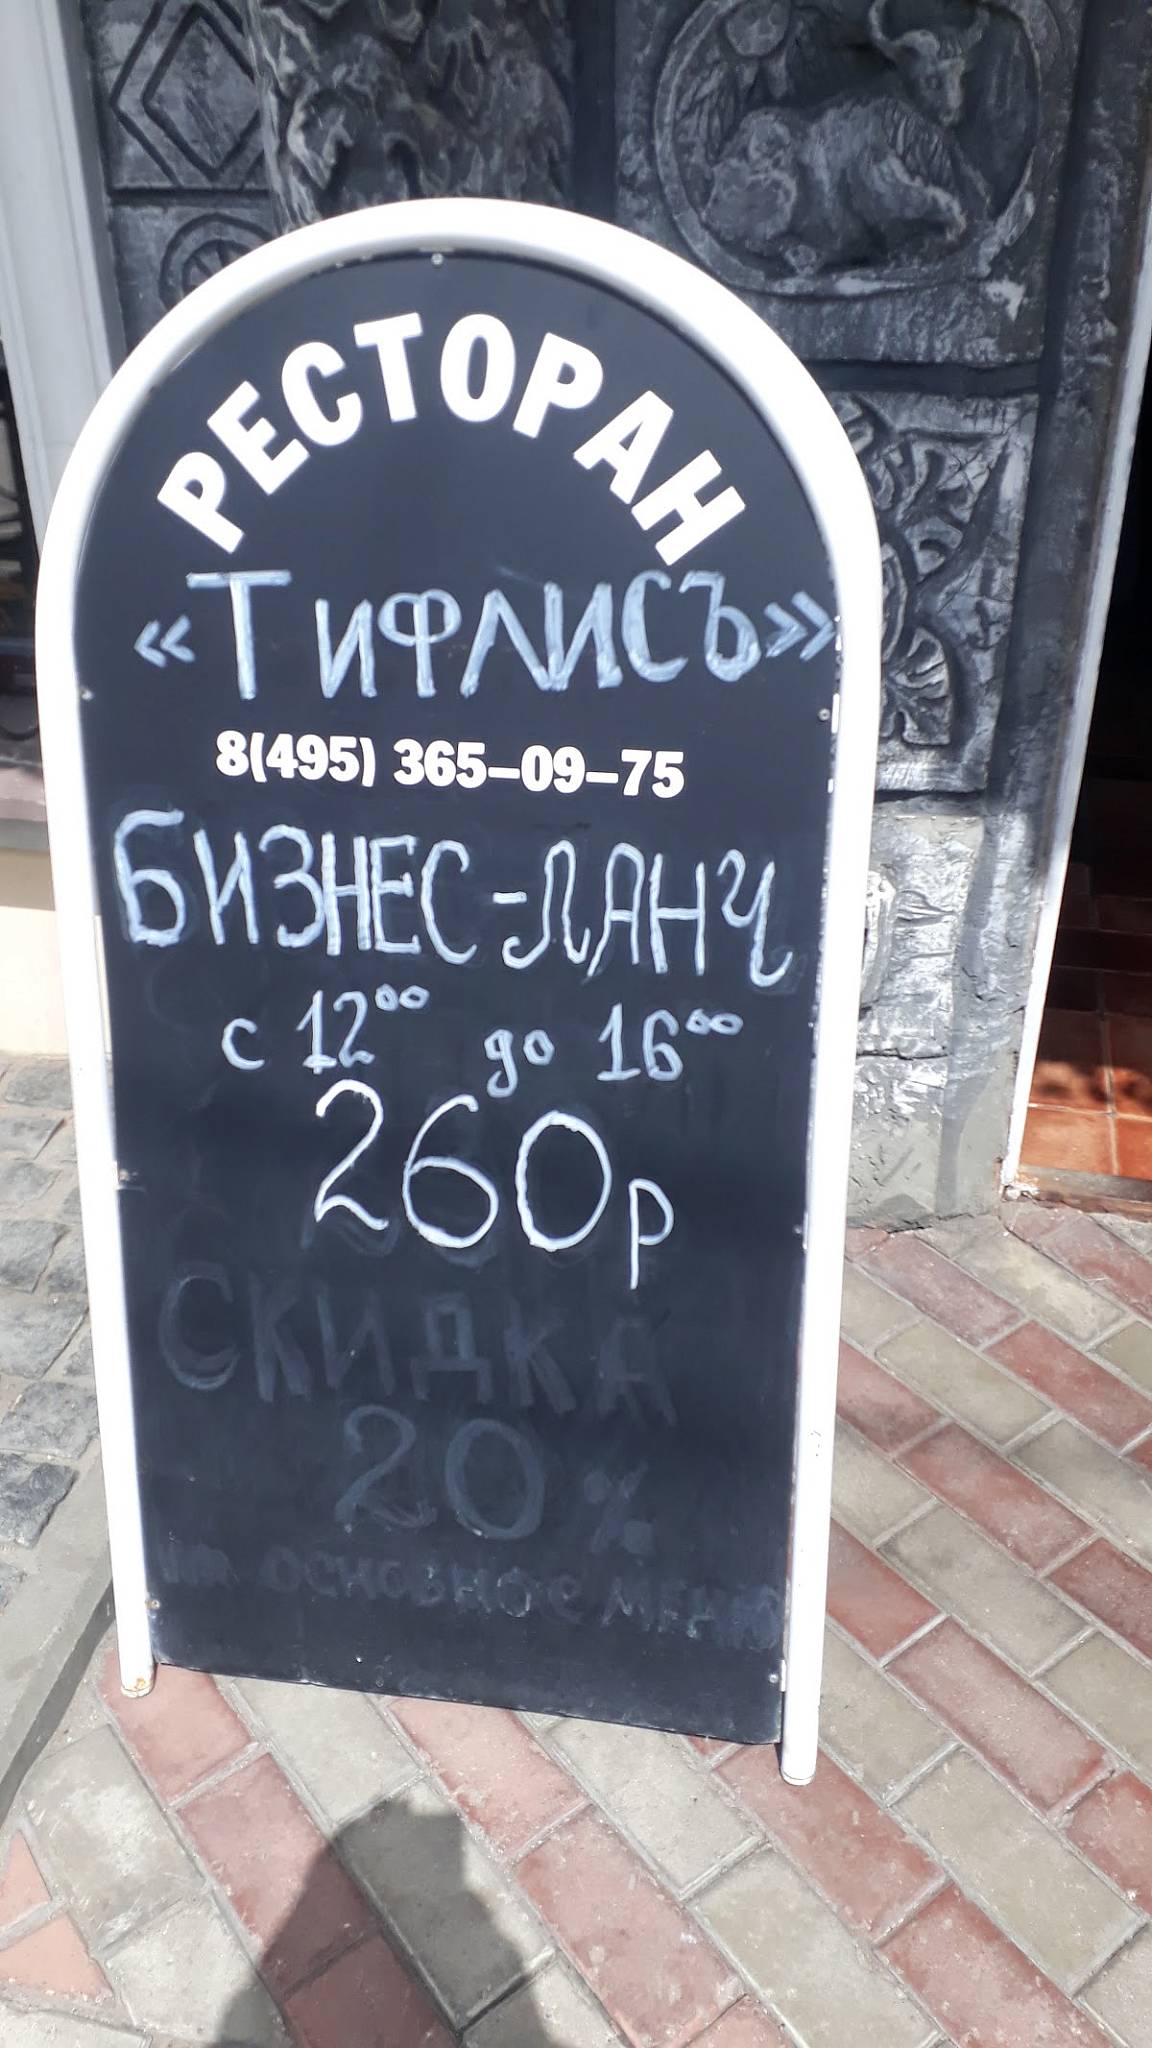 РЕСТОРАН
«ТИФЛИСЪ»
8(495) 365-09-75
БИЗНЕС-ЛАНЧ
с 12⁰⁰ до 16⁰⁰
260р
СКИДКА
20%
на основное меню